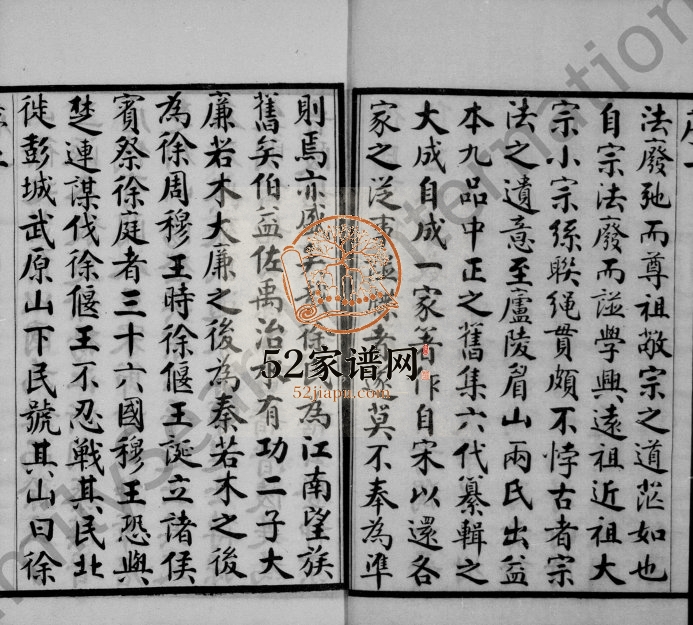 法廢弛而尊祖敬宗之道茫如也
自宗法廢而譜學興遠祖近祖大
宗小宗絲聯繩貫頗不悖古者宗
法之遺意至廬陵眉山兩氏出益
本九品中正之舊集六代纂輯之
大成自成一家著作自宋以還各
家之從事譜牒者遂莫不奉為準
則焉亦盛矣哉徐為江南望族
舊矣伯益佐禹治水有功二子大
廉若木大廉之後為秦若木之後
為徐周穆王時徐偃王誕立諸侯
賓祭徐庭者三十六國穆王恐與
楚連謀伐徐偃王不忍戰其民北
徙彭城武原山下民號其山曰徐
52家谱网
52jiapu.com